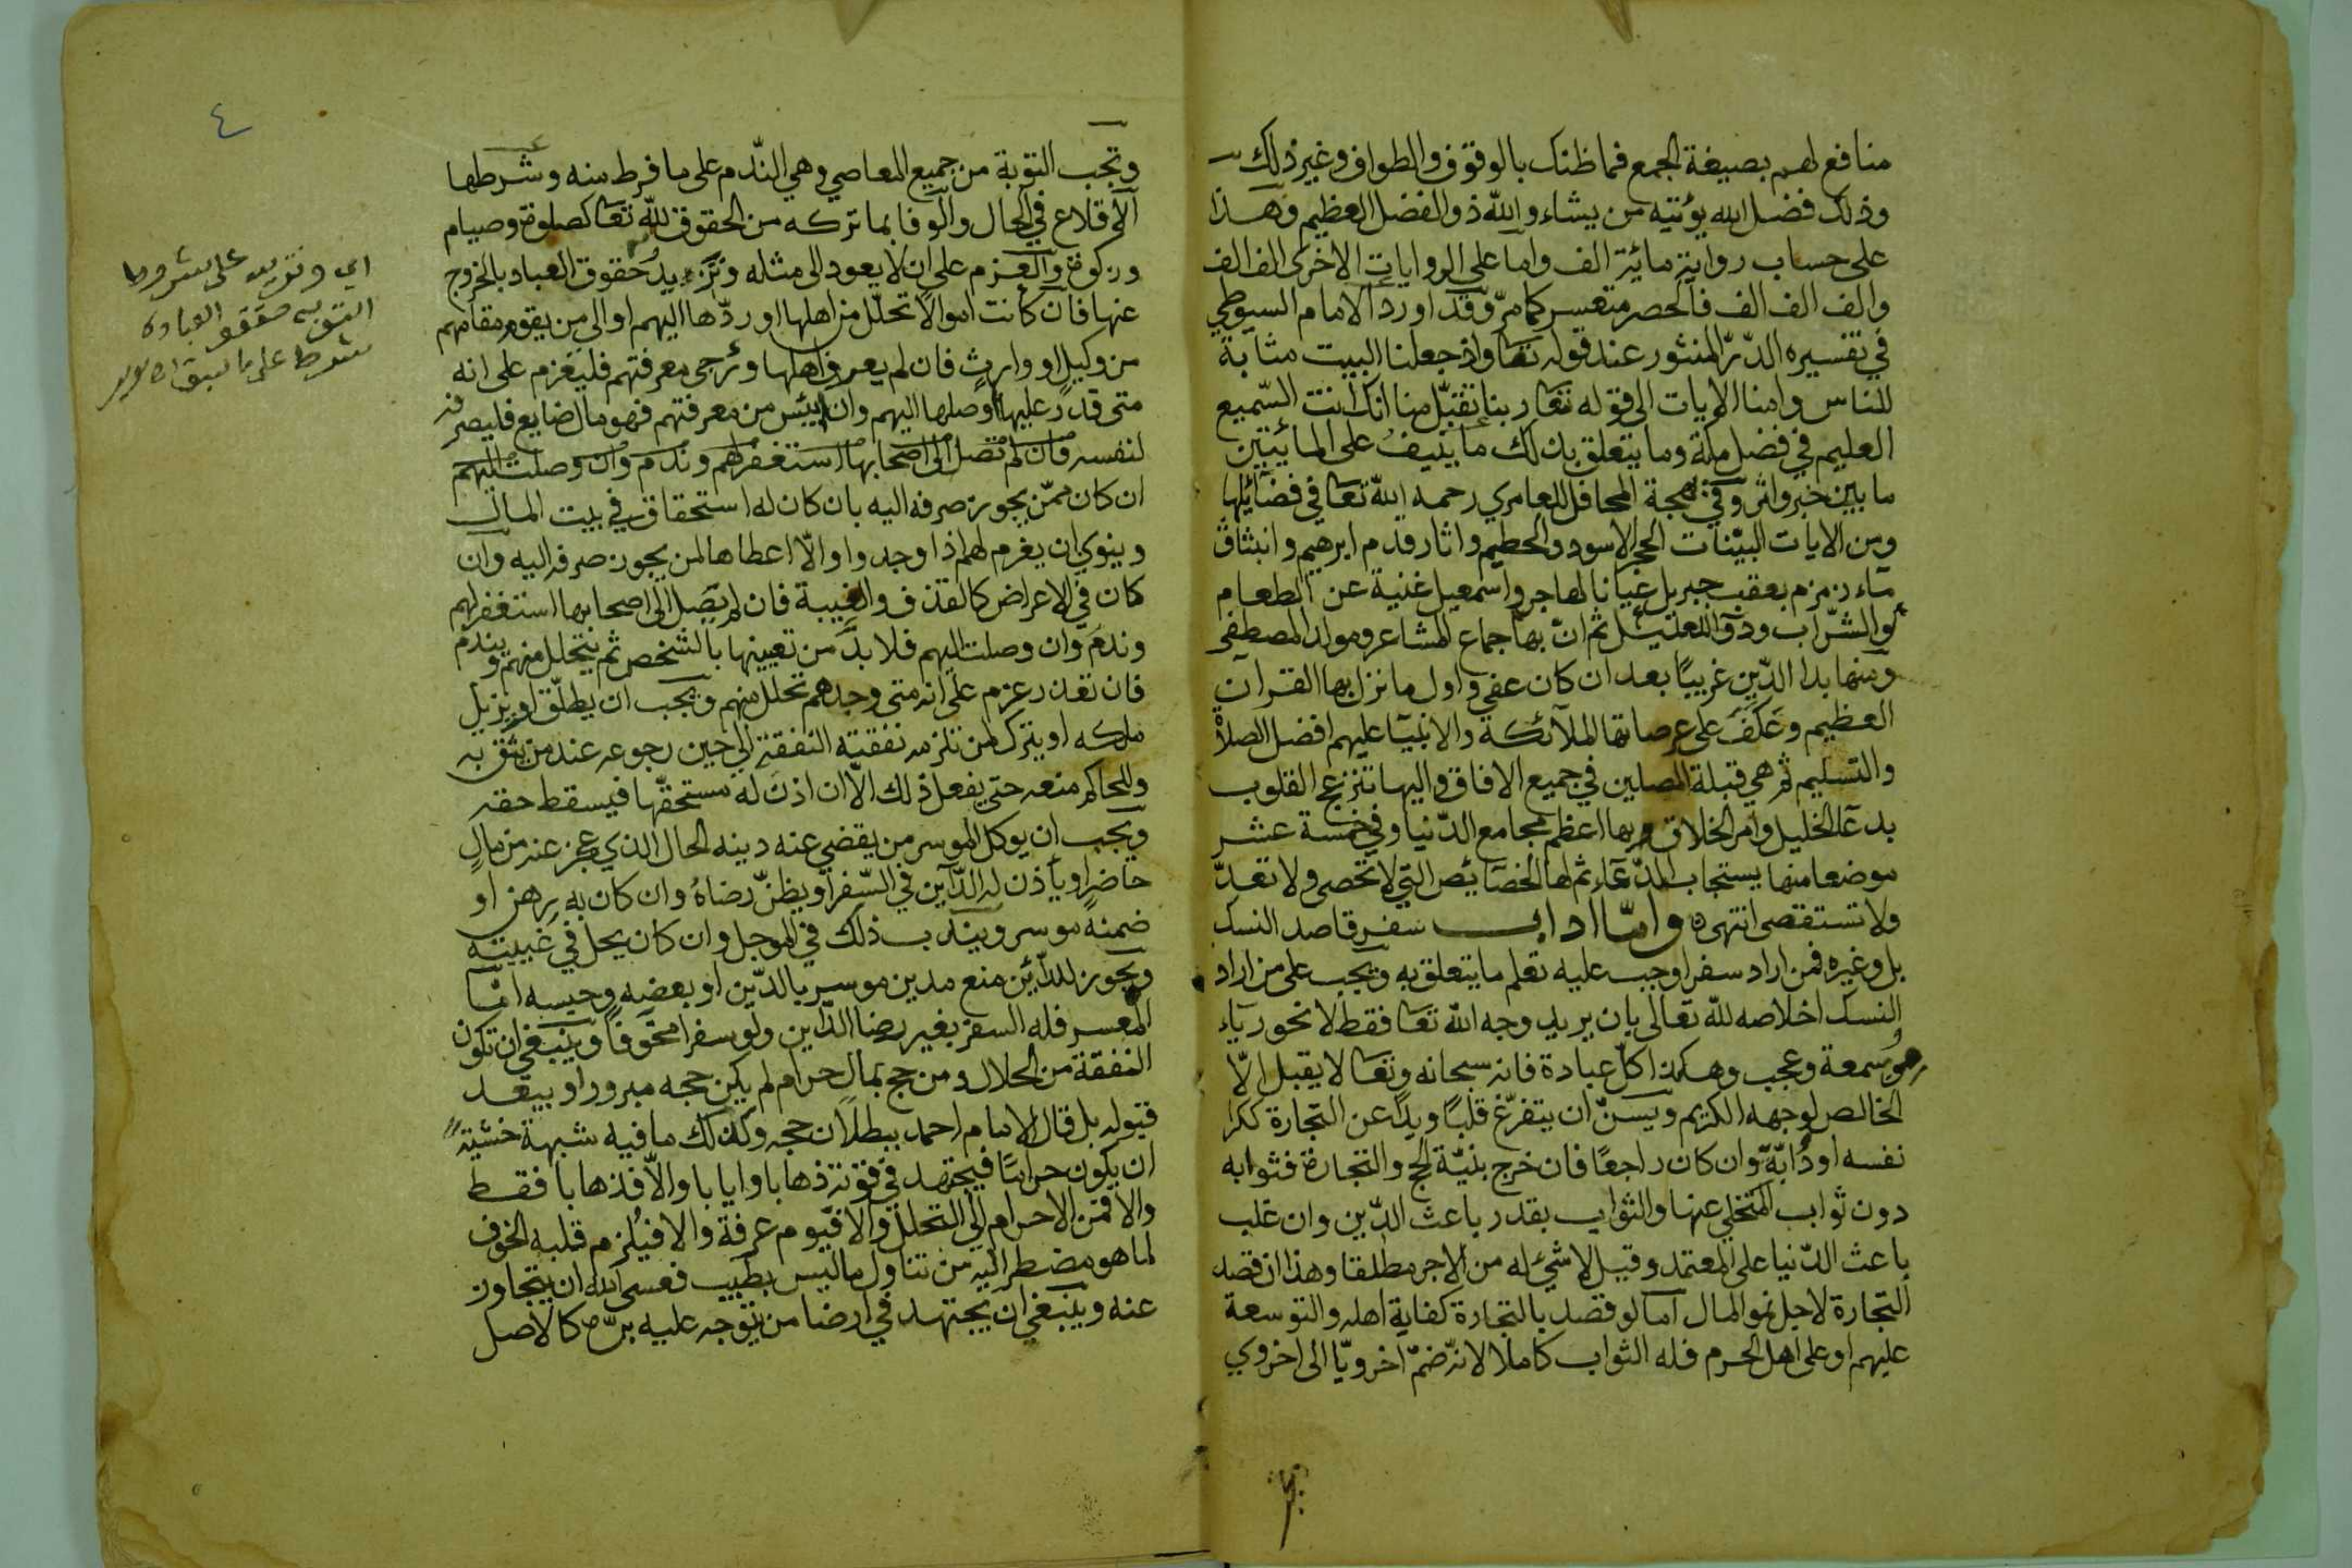 منافع لهم بصيغة الجمع فما ظنك بالوقوف والطواف وغير ذلك
وذلك فضل الله يؤتيه من يشاء والله ذو الفضل العظيم وهذا
على حساب رواية مائة الف واما على الروايات الاخرى الف الف
والف الف الف فالحصر متعسر كما مرّ وقد اورد الامام السيوطي
في تفسيره الدرّ المنثور عند قوله تعا واذ جعلنا البيت مثابة
للناس وامنا الايات الى قوله تعا ربنا تقبّل منا انك انت السّميع
العليم في فضل مكة وما يتعلق بذلك ما ينيف على المائيتين
ما بين خبر واثر وفي بهجة المحافل للعامري رحمه الله تعا في فضائلها
ومن الايات البيّنات الحجر الاسود والحطيم واثار قدم ابرهيم وانبثاق
ماء زمزم بعقب جبريل غياثا لهاجر واسمعيل غنية عن الطعام
والشّراب ودوآ للعليل ثم انّ بها جماع المشاعر ومولد المصطفى
ومنها بدا الدّين غريبًا بعد ان كان عفي واول ما نزل بها القران
العظيم وعَكَفَ على عرصاتها الملآئكة والانبيآ عليهم افضل الصلاة
والتسليم ثم هي قبلة المصلين في جميع الافاق واليها تنزع القلوب
بدعآ الخليل وامر الخلاق وبها اعظم مجامع الدّنيا وفي خمسة عشر
موضعا منها يستجاب الدّعآء ثم لها الخصائص التي لا تحصى ولا تعدّ
ولا تستقصى انتهى وامّا اداب سفر قاصد النسك
بل وغيره فمن اراد سفرا وجب عليه تعلم ما يتعلق به ويجب على من اراد
النسك اخلاصه لله تعالى بان يريد وجه الله تعا فقط لا نحو ريآء
وسمعة وعجب وهكذا كلّ عبادة فانه سبحانه وتعا لا يقبل الّا
الخالص لوجهه الكريم ويسنّ ان يتفرّغ قلبًا ويدًا عن التجارة ككرا
نفسه او دابّةٍ وان كان راجعًا فان خرج بنيّة الحج والتجارة فثوابه
دون ثواب المتخلي عنها والثواب بقدر باعث الدّين وان غلب
باعث الدّنيا على المعتمد وقيل لا شئ له من الاجر مطلقا وهذا ان قصد
التجارة لاجل نمو المال اما لو قصد بالتجارة كفاية اهله والتوسعة
عليهم او على اهل الحرم فله الثواب كاملا لانه ضمّ اخرويّا الى اخروي
٤
وتجب التوبة من جميع المعاصي وهي النّدم على ما فرط منه وشرطها
الاقلاع في الحال والوفا بما تركه من الحقوق لله تعا كصلوة وصيام
وزكوة والعزم على ان لا يعود الى مثله وتزيد حقوق العباد بالخروج
عنها فان كانت اموالا تحلّل من اهلها او ردّها اليهم او الى من يقوم مقامهم
من وكيل او وارثٍ فان لم يعرف اهلها ورجى معرفتهم فليعزم على انه
متى قدر عليها اوصلها اليهم وان ايئس من معرفتهم فهو مال ضايع فليصرفه
لنفسه فان لم تصل الى اصحابها استغفر لهم وندم وان وصلت اليهم
ان كان ممّن يجوز صرفه اليه بان كان له استحقاق في بيت المال
وينوي ان يغرم لهم اذا وجدوا والّا اعطاها لمن يجوز صرفه اليه وان
كان في الاعراض كالقذف والغيبة فان لم يَصِل الى اصحابها استغفر لهم
وندم وان وصلت اليهم فلا بدّ من تعيينها بالشخص ثم يتحلل منهم ويندم
فان تعذر عزم على انه متى وجدهم تحلل منهم ويجب ان يطلّق او يزيل
ملكه او يترك لمن تلزمه نفقته النفقة الى حين رجوعه عند من يثق به
وللحاكم منعه حتى يفعل ذلك الّا ان اذن له مستحقّها فيسقط حقه
ويجب ان يوكل الموسر من يقضي عنه دينه الحال الذي عجز عنه من مالٍ
حاضرٍ او ياذن له الدّاين في السّفر او يظنّ رضاهُ وان كان به رهن او
ضمنه موسر ويندب ذلك في الموجل وان كان يحل في غيبته
ويجوز للدّائن منع مدين موسر بالدّين او بعضه وحبسه امّا
المعسر فله السفر بغير رضا الدّاين ولو سفرا مخوفا وينبغي ان تكون
النفقة من الحلال ومن حج بمال حرام لم يكن حجه مبرورا ويبعد
قبوله بل قال الامام احمد ببطلان حجه وكذلك ما فيه شبهة خشية
ان يكون حرامًا فيجتهد في قوته ذهابا وايابا والّا فذهابا فقط
والا فمن الاحرام الى التحلل والا فيوم عرفة والا فيُلزم قلبه الخوف
لما هو مضطر اليه من تناول ما ليس بطيب فعسى الله ان يتجاوز
عنه وينبغي ان يجتهد في ارضا من يتوجه عليه برّه كالاصل
اي وتزيد على شروط
التوبه حقوق العباد